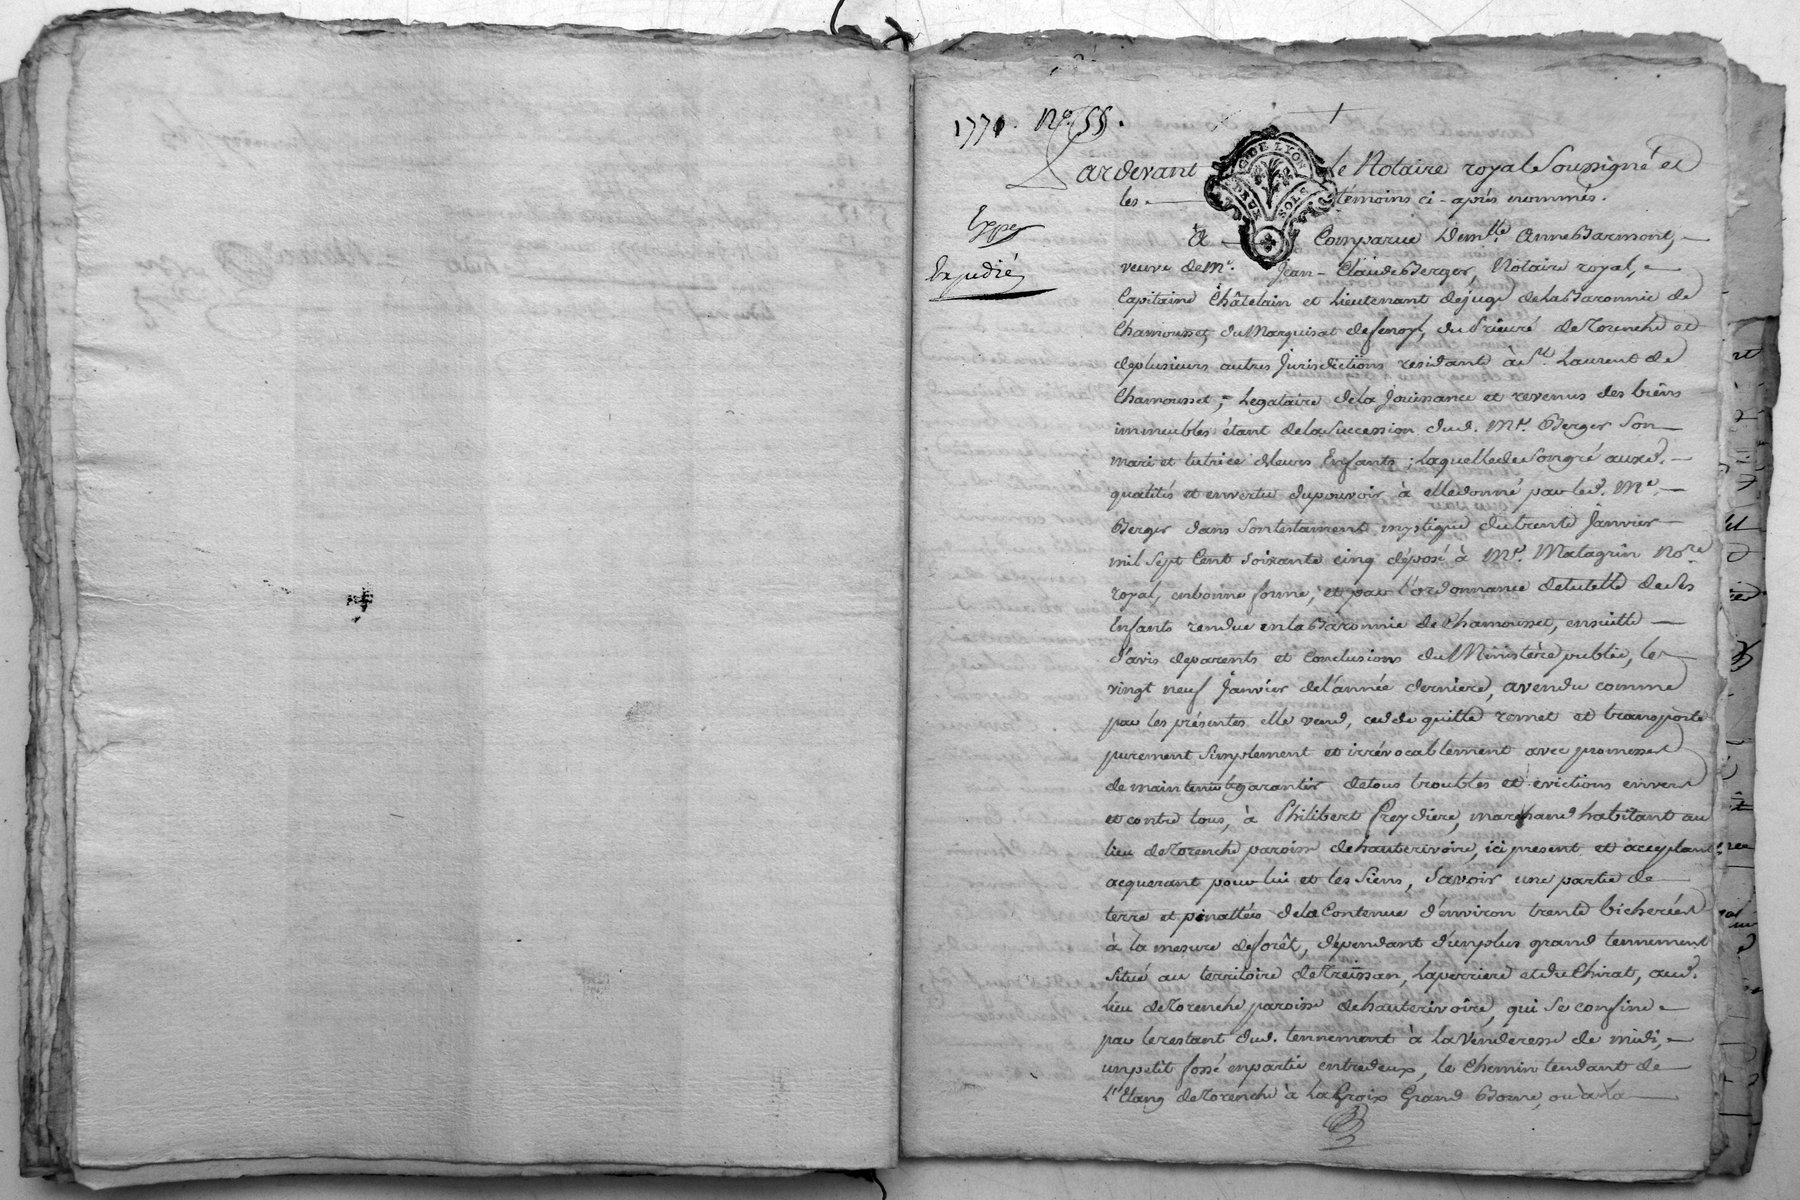 1771. N.o 55.
Pardevant le Notaire royal Soussigné et
les témoins ci-après nommés.
GDE LYON
DEUX SOLS
A Comparue Demlle Anne Barmont,
Expé
Expedié
veuve de Me. Jean-Claude Berger, Notaire royal,
Capitaine Châtelain et Lieutenant de juge de la Baronnie de
Chamousset, du Marquisat de fenoyl, du Prieuré de Torenche et
de plusieurs autres Jurisdictions residante à St. Laurent de
Chamousset, Legataire de la Jouissance et revenus des biens
immeubles étant de la Succession dud. Me. Berger Son
mari et tutrice de leurs Enfants; laquelle de Son gré auxd.
qualités et en vertu du pouvoir à elle donné par led. Me.
Berger dans Son testament mystique du trente Janvier
mil Sept Cent Soixante cinq déposé à Me. Matagrin Nore
royal, en bonne forme, et par l'ordonnance de tutelle de Ses
Enfants rendue en la Baronnie de Chamousset, ensuitte
d'avis de parents et Conclusions du Ministère public, le
vingt neuf Janvier de l'année derniere, a vendu comme
par les présentes elle vend, cedde quitte remet et transporte
purement Simplement et irrévocablement avec promesse
de maintenir et garantir de tous troubles et évictions envers
et contre tous, à Philibert Preydiere, marchand habitant au
lieu de Torenche paroisse de hauterivoire, ici present et acceptant
acquerant pour lui et les Siens, Savoir une partie de
terre et pinattées de la Contenue d'environ trente bicherées
à la mesure de forêt, dépendant d'un plus grand tennement
Situé au territoire de Treissan, Laperriere et du Chirat, aud.
lieu de Torenche paroisse de hauterivoire, qui Se confine
par le restant dud. tennement à la Venderesse de midi,
un petit fossé en partie entredeux, le Chemin tendant de
L'Etang de Torenche à La Croix Grand Borne, ou à la